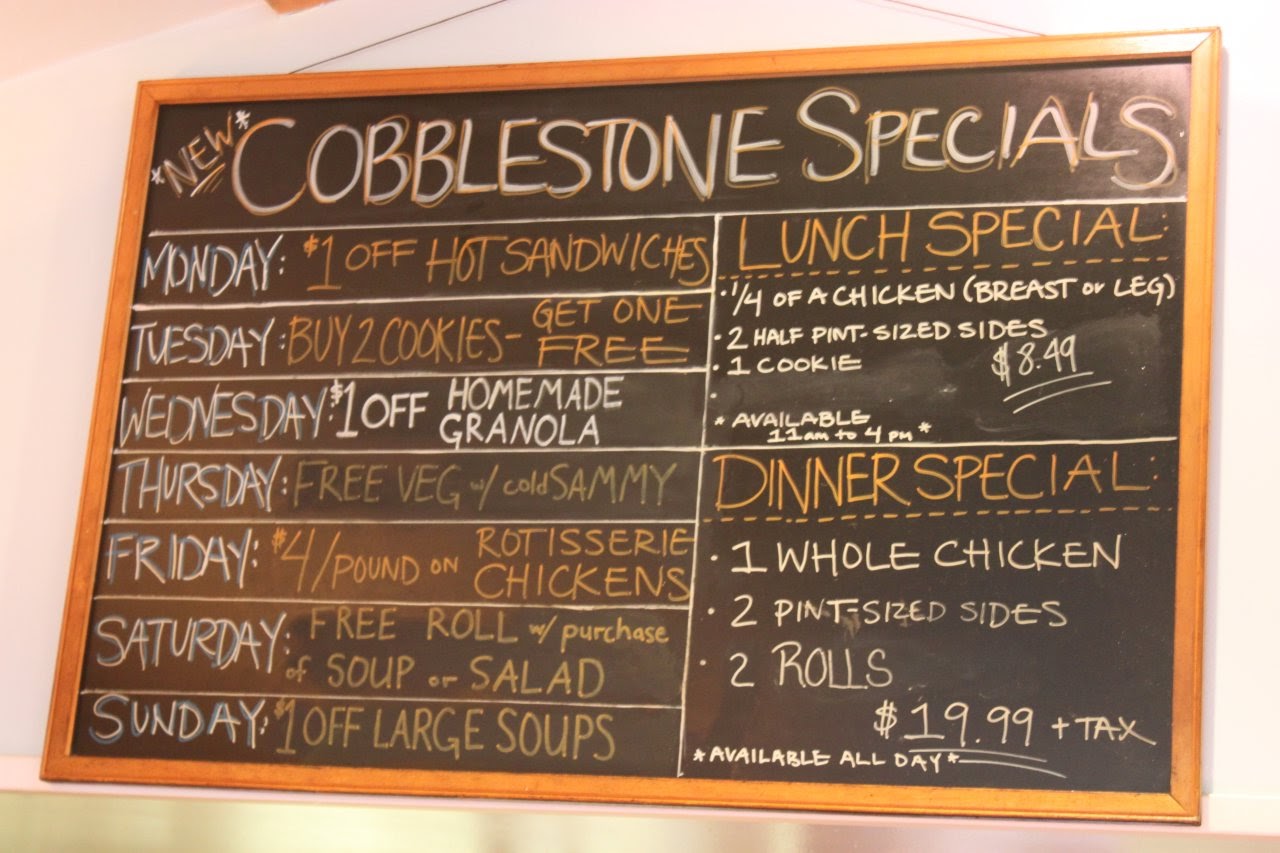 *NEW* COBBLESTONE SPECIALS
MONDAY: $1 OFF HOT SANDWICHES
TUESDAY: BUY 2 COOKIES- GET ONE
FREE
WEDNESDAY: $1 OFF HOMEMADE
GRANOLA
THURSDAY: FREE VEG w/ cold SAMMY
FRIDAY: $4/POUND ON ROTISSERIE
CHICKENS
SATURDAY: FREE ROLL w/ purchase
of SOUP or SALAD
SUNDAY: $1 OFF LARGE SOUPS
LUNCH SPECIAL:
· 1/4 OF A CHICKEN (BREAST or LEG)
· 2 HALF PINT-SIZED SIDES
· 1 COOKIE $8.49
* AVAILABLE
11am to 4 pm *
DINNER SPECIAL:
· 1 WHOLE CHICKEN
· 2 PINT-SIZED SIDES
· 2 ROLLS
$19.99 + TAX
*AVAILABLE ALL DAY*